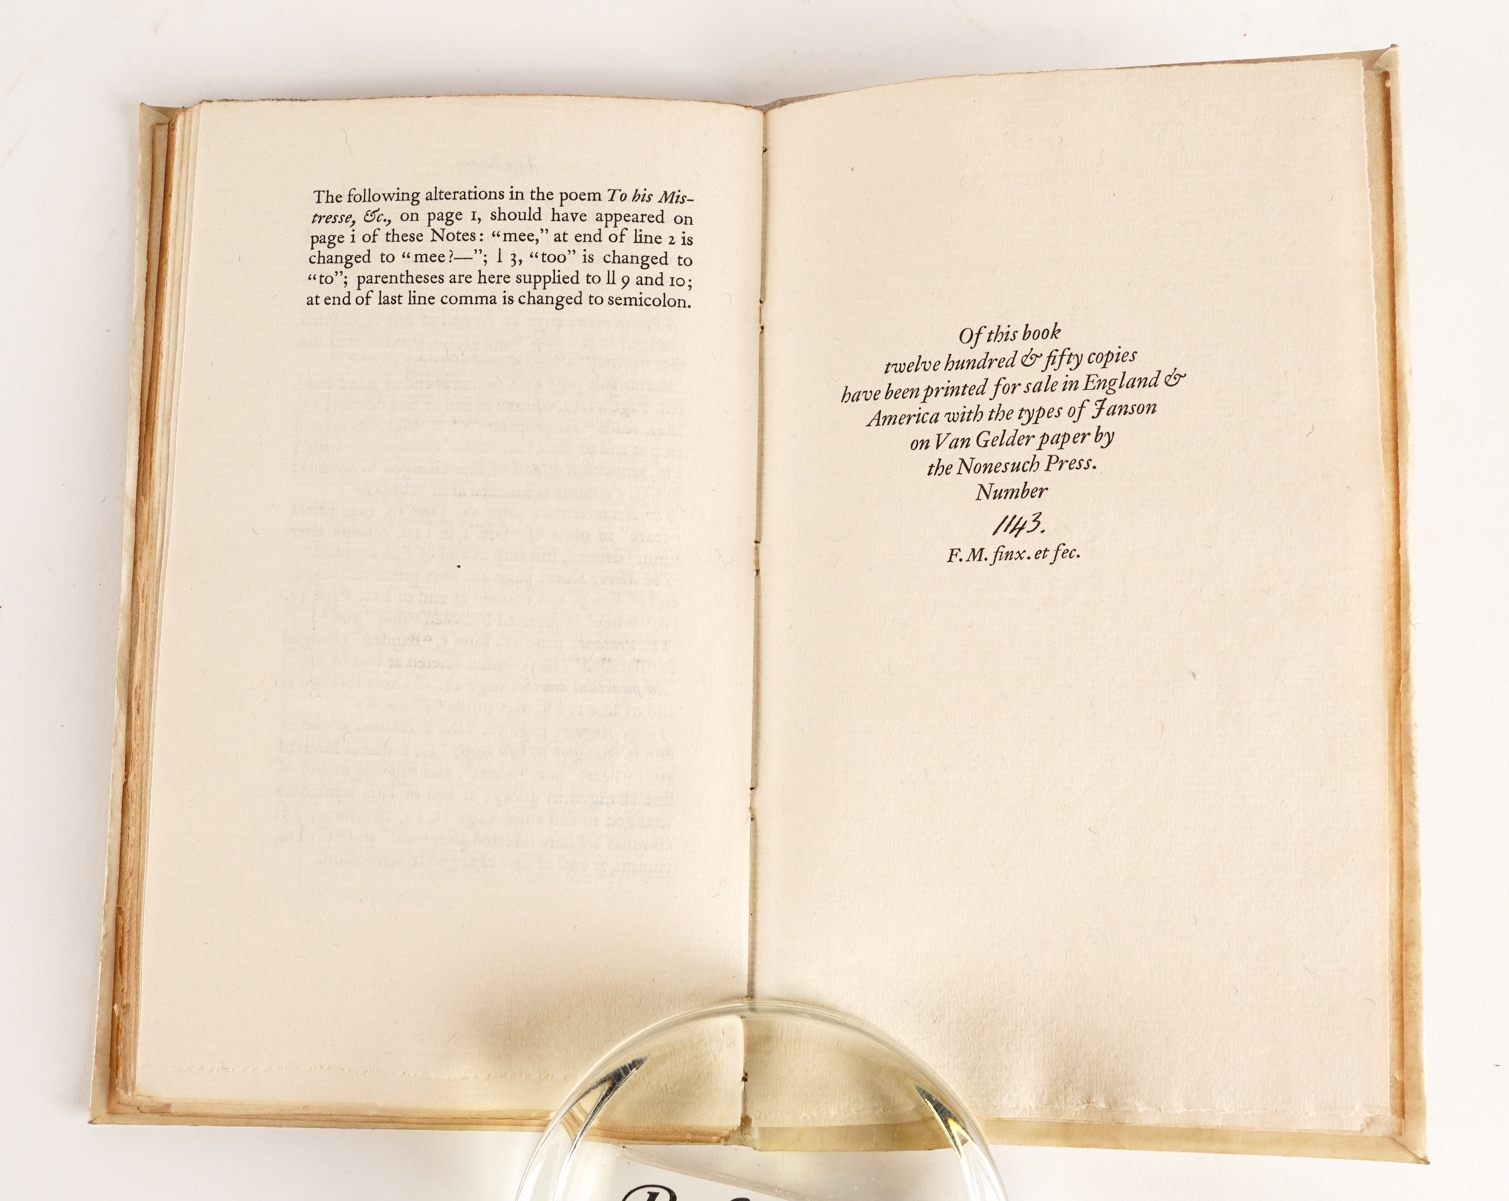 The following alterations in the poem To his Mis-
tresse, &c., on page 1, should have appeared on
page i of these Notes: “mee,” at end of line 2 is
changed to “mee?—”; l 3, “too” is changed to
“to”; parentheses are here supplied to ll 9 and 10;
at end of last line comma is changed to semicolon.
Of this book
twelve hundred & fifty copies
have been printed for sale in England &
America with the types of Janson
on Van Gelder paper by
the Nonesuch Press.
Number
1143.
F. M. finx. et fec.